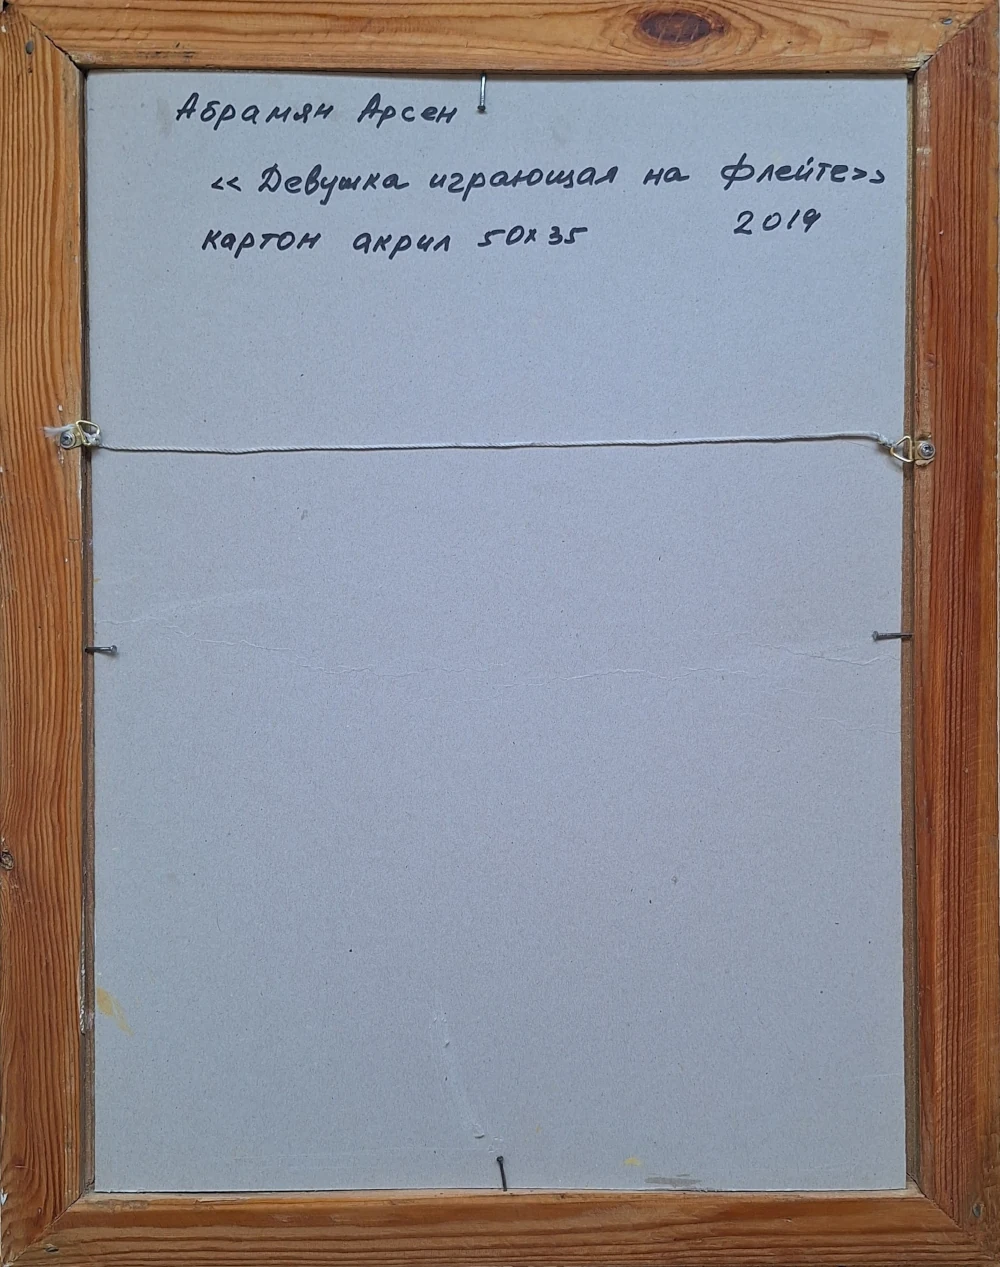 Абрамян Арсен
<< Девушка играющая на флейте>>
картон акрил 50х35 2019